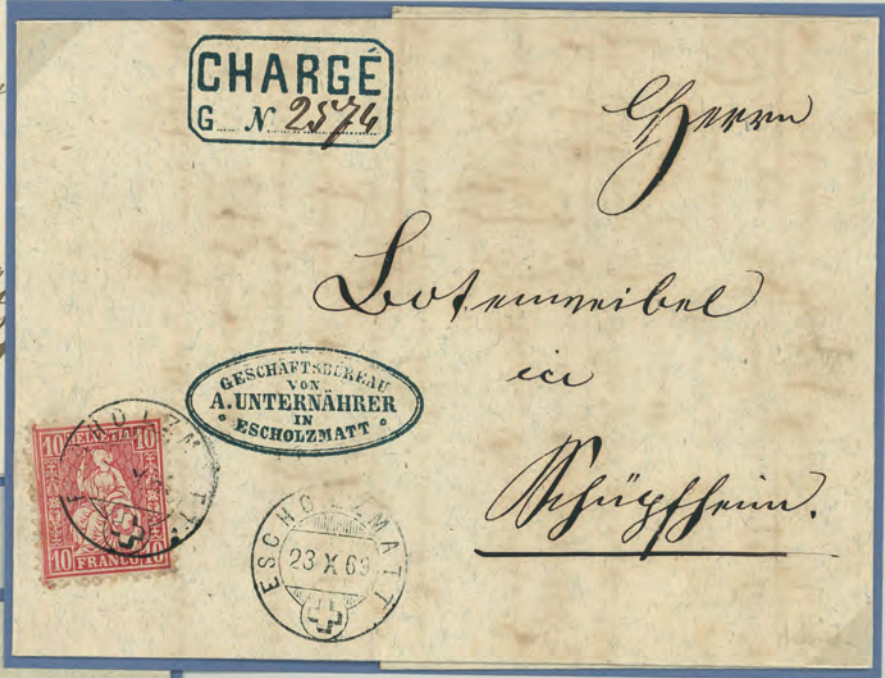 CHARGÉ
G N 2574
Herrn
Botenweibel
in
Schüpfheim.
GESCHÄFTSBUREAU
VON
A. UNTERNÄHRER
IN
ESCHOLZMATT
10 HELVETIA 10
10 FRANCO 10
ESCHOLZMATT
ESCHOLZMATT
23 X 69